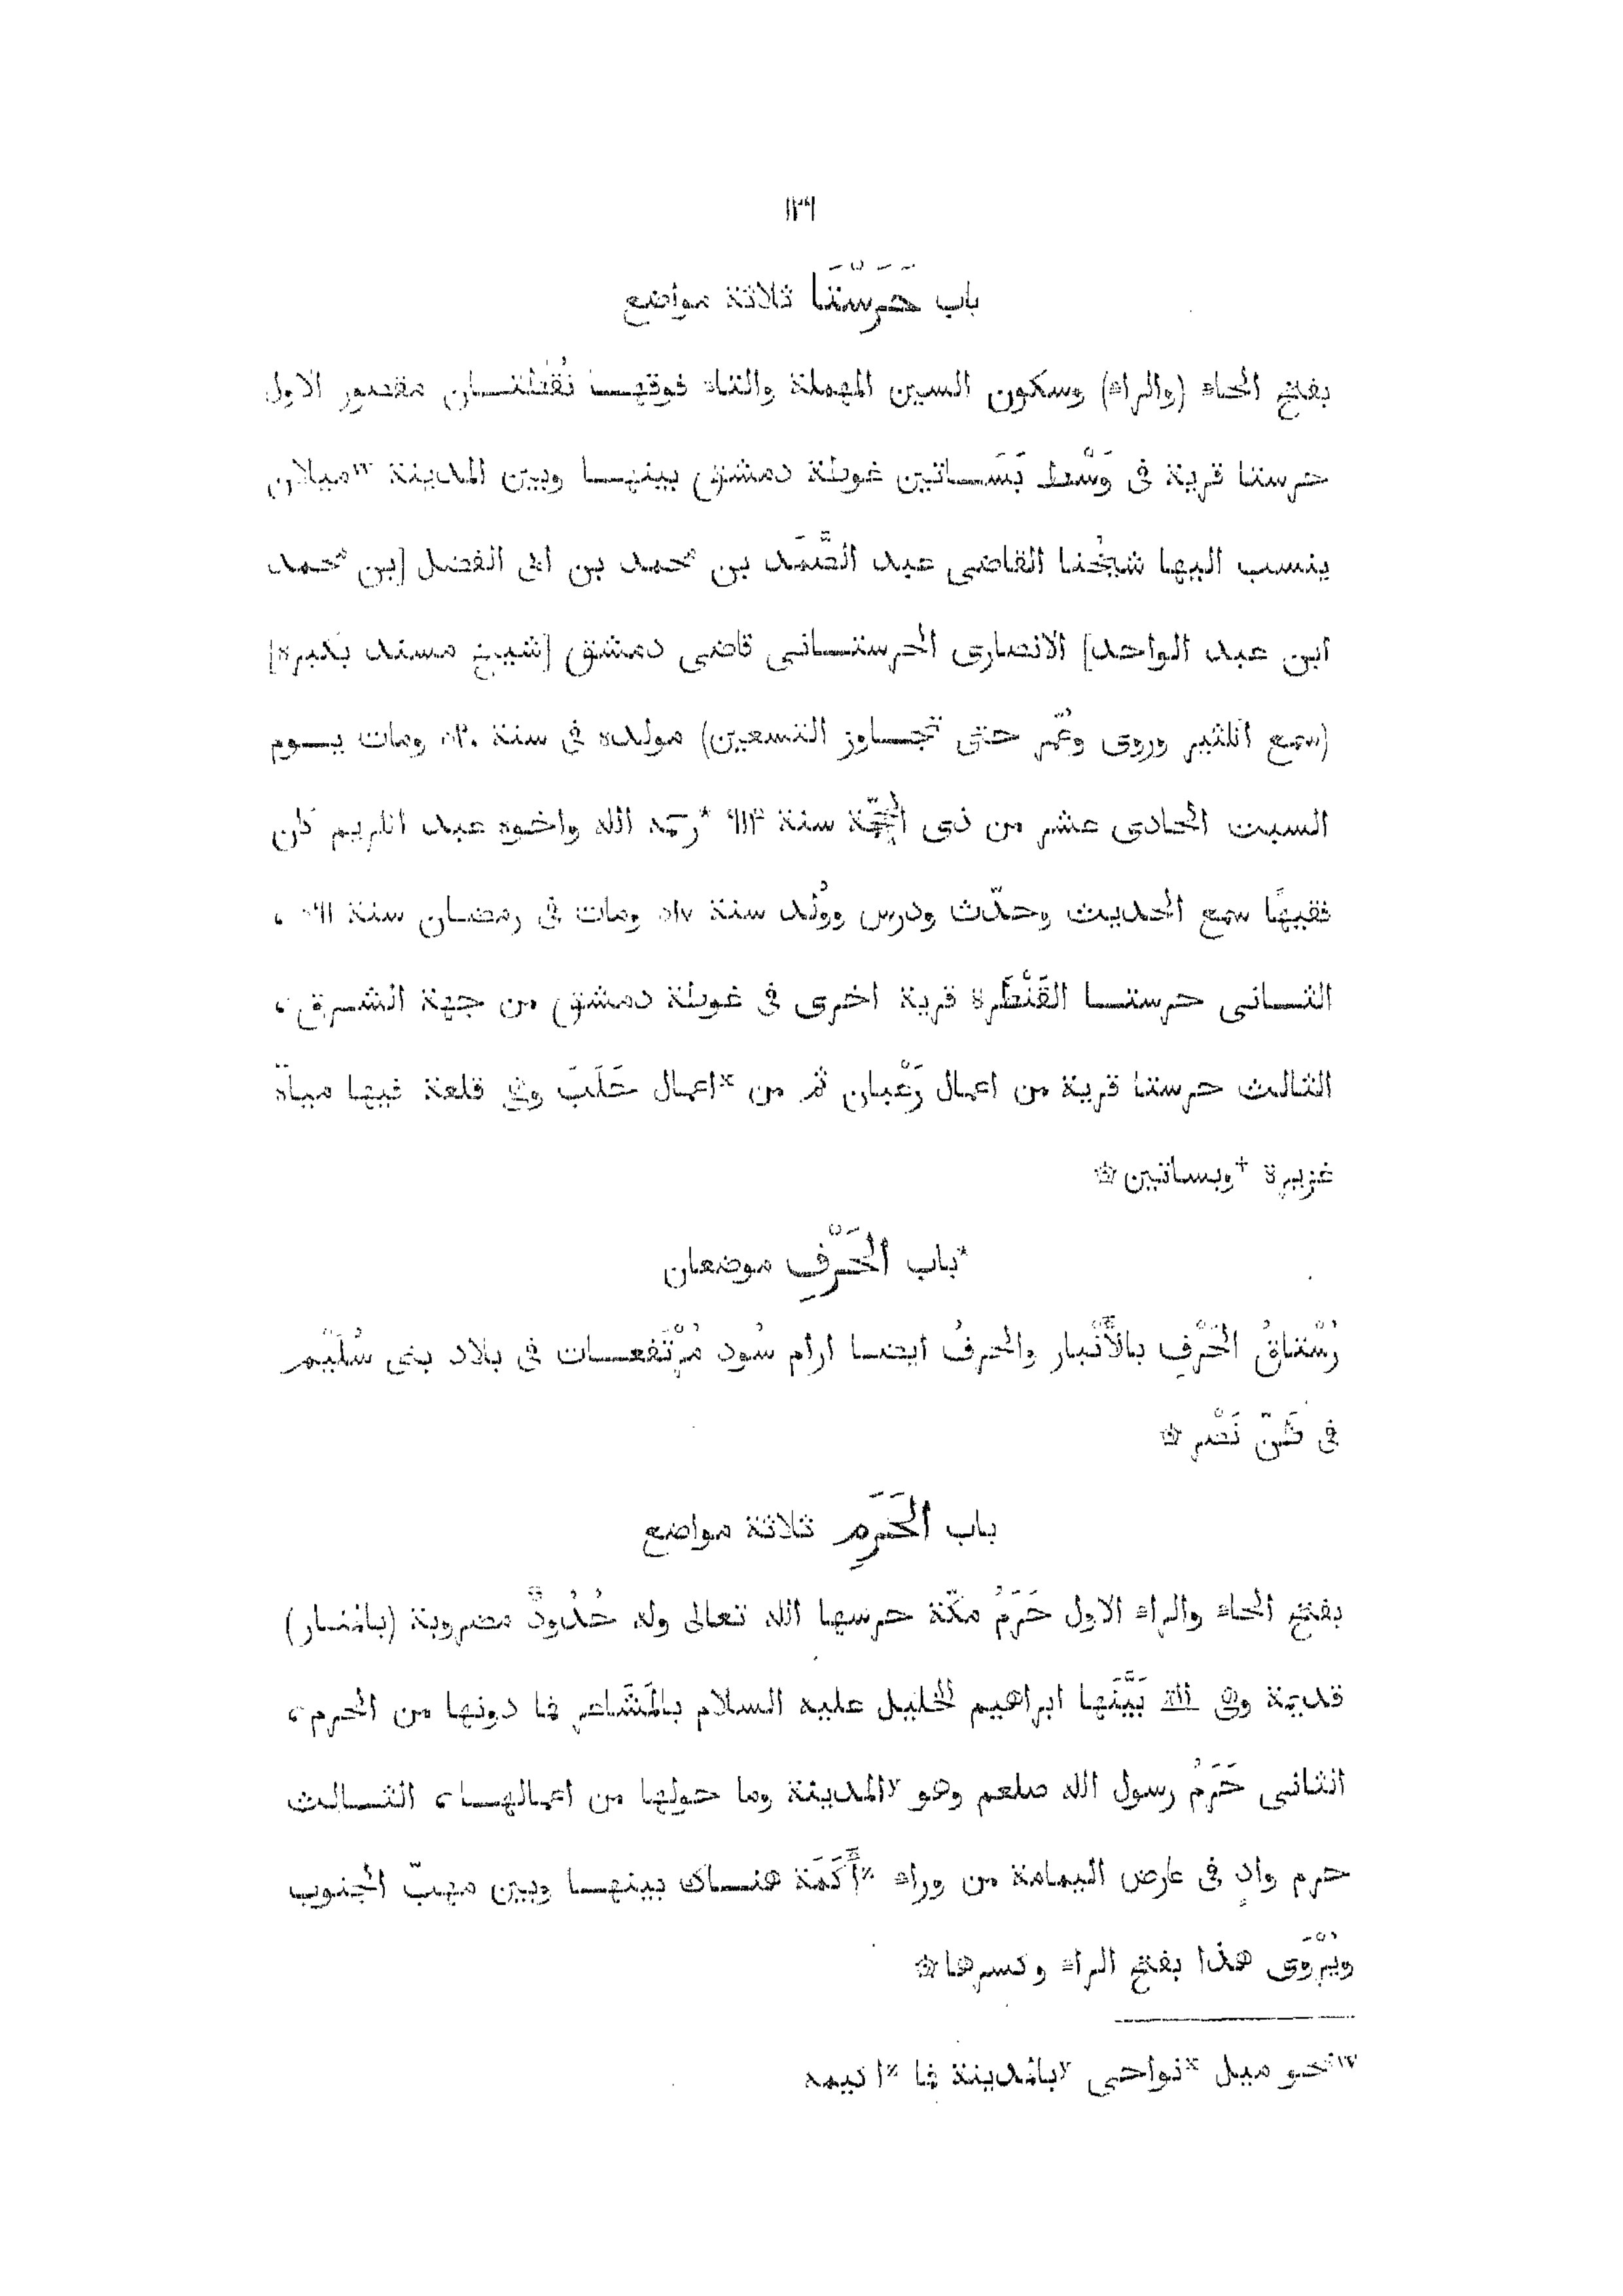 ١٢٩
باب حَرَسْتَا ثلاثة مواضع
بفتح الحاء (والراء) وسكون السين المهملة والتاء فوقهـا نُقْطتـان مقصور الاول
حرستا قرية فى وَسْط بَسَـاتين غوطة دمشق بينهـا وبين المدينة ميلان
ينسب اليها شيخُنا القاضى عبد الصَّمَد بن محمد بن ابى الفضل [بن محمد
ابن عبد الواحد] الانصارى الحرستـانى قاضى دمشق [شيخ مسند بكبرة]
(سمع الكثير وروى وعُمّر حتى تجـاوز التسعين) مولده فى سنة ٥٢٠ ومات يـوم
السبت الحادى عشر من ذى الحِجّة سنة ٦١٤ *رحمه الله واخوه عبد الكريم كان
فقيهًا سمع الحديث وحدّث ودرس ووُلد سنة ٥١٧ ومات فى رمضـان سنة ٥٦١ ،
الثـانى حرستـا القَنْطَرة قرية اخرى فى غوطة دمشق من جهة الشـرق ،
الثالث حرستا قرية من اعمال رَعْبان ثم من ×اعمال حَلَبَ وفى قلعة فيها مياه
غزيرة +وبساتين ۞
*باب الحَرْفِ موضعان
رُسْتاقُ الحَرْفِ بالأَنْبار والحرفُ ايضـا ارام سُود مُرْتَفِعـات فى بلاد بنى سُلَيْم
فى نَصْر ۞
باب الحَرَمِ ثلاثة مواضع
بفتح الحاء والراء الاول حَرَمُ مكّة حرسها الله تعالى وله حُدُودٌ مضروبة (بالمنار)
قديمة وهى الّتى بَيَّنَها ابراهيم الخليل عليه السلام بالمَشَاعر فما دونها من الحرم ،
الثانى حَرَمُ رسول الله صلعم وهو ʸالمدينة وما حولها من اعمالهـا ، الثـالث
حرم وادٍ فى عارض اليمامة من وراء ᶻأَكَمَة هنـاك بينهـا وبين مهبّ الجنوب
ويُرْوَى هذا بفتح الراء وكسرها ۞
ʷنحو ميل ˣنواحى ʸبالمدينة فما ᶻاكيمه